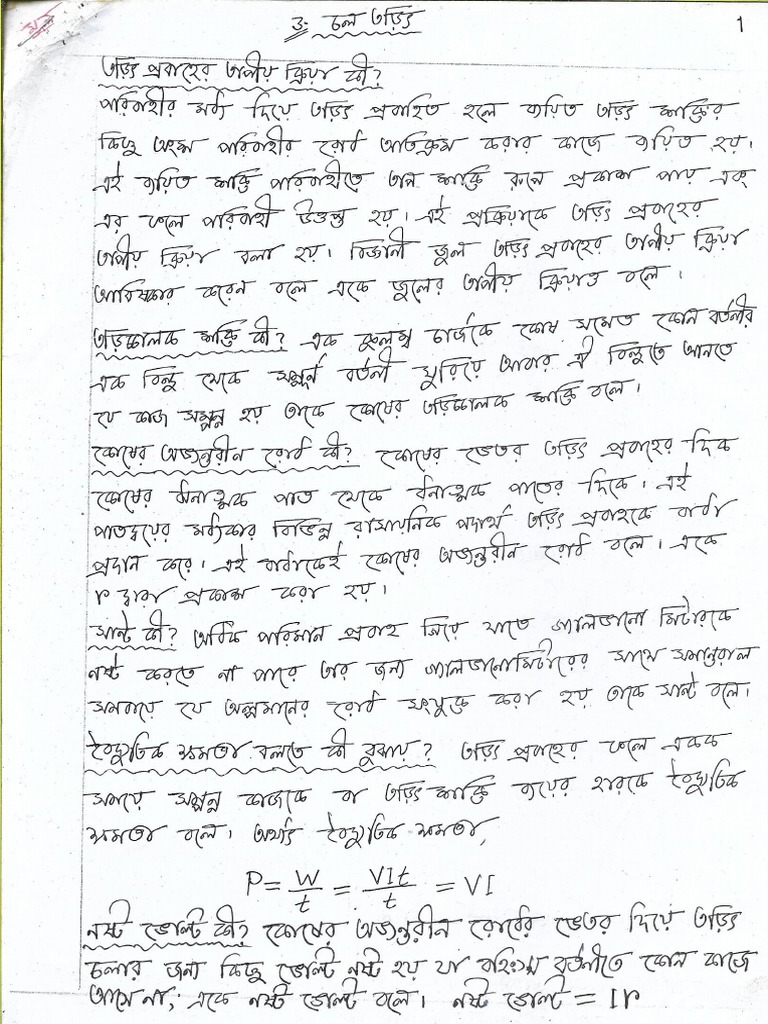 ৩. চল তড়িৎ
1
তড়িৎ প্রবাহের তাপীয় ক্রিয়া কী?
পরিবাহীর মধ্য দিয়ে তড়িৎ প্রবাহিত হলে ব্যয়িত তড়িৎ শক্তির
কিছু অংশ পরিবাহীর রোধ অতিক্রম করার কাজে ব্যয়িত হয়।
এই ব্যয়িত শক্তি পরিবাহীতে তাপ শক্তি রূপে প্রকাশ পায় এবং
এর ফলে পরিবাহী উত্তপ্ত হয়। এই প্রক্রিয়াকে তড়িৎ প্রবাহের
তাপীয় ক্রিয়া বলা হয়। বিজ্ঞানী জুল তড়িৎ প্রবাহের তাপীয় ক্রিয়া
আবিষ্কার করেন বলে একে জুলের তাপীয় ক্রিয়াও বলে।
তড়িচ্চালক শক্তি কী? এক কুলম্ব চার্জকে কোষ সমেত কোন বর্তনীর
এক বিন্দু থেকে সম্পূর্ণ বর্তনী ঘুরিয়ে আবার ঐ বিন্দুতে আনতে
যে কাজ সম্পন্ন হয় তাকে কোষের তড়িচ্চালক শক্তি বলে।
কোষের অভ্যন্তরীন রোধ কী? কোষের ভেতর তড়িৎ প্রবাহের দিক
কোষের ঋনাত্মক পাত থেকে ধনাত্মক পাতের দিকে। এই
পাতদ্বয়ের মধ্যকার বিভিন্ন রাসায়নিক পদার্থ তড়িৎ প্রবাহকে বাধা
প্রদান করে। এই বাধাকেই কোষের অভ্যন্তরীন রোধ বলে। একে
r দ্বারা প্রকাশ করা হয়।
সান্ট কী? অধিক পরিমান প্রবাহ গিয়ে যাতে গ্যালভানো মিটারকে
নষ্ট করতে না পারে তার জন্য গ্যালভানোমিটারের সাথে সমান্তরাল
সমবায়ে যে অল্পমানের রোধ সংযুক্ত করা হয় তাকে সান্ট বলে।
বৈদ্যুতিক ক্ষমতা বলতে কী বুঝায়? তড়িৎ প্রবাহের ফলে একক
সময়ে সম্পন্ন কাজকে বা তড়িৎ শক্তি ব্যয়ের হারকে বৈদ্যুতিক
ক্ষমতা বলে। অর্থাৎ বৈদ্যুতিক ক্ষমতা,
P = W/t = VIt/t = VI
নষ্ট ভোল্ট কী? কোষের অভ্যন্তরীন রোধের ভেতর দিয়ে তড়িৎ
চলার জন্য কিছু ভোল্ট নষ্ট হয় যা বহিঃস্থ বর্তনীতে কোন কাজে
আসে না, একে নষ্ট ভোল্ট বলে। নষ্ট ভোল্ট = Ir